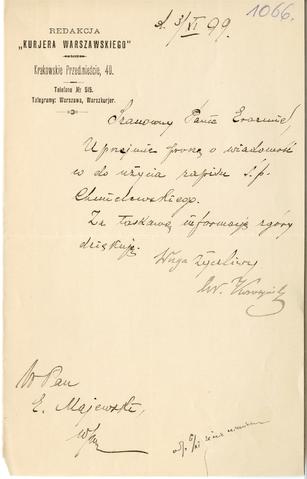 1066.
REDAKCJA
„KURJERA WARSZAWSKIEGO"
Krakowskie Przedmieście, 40.
Telefonu № 515.
Telegramy: Warszawa, Warszkurjer.
d. 3/XI 99.
Szanowny Panie Erazmie,
Uprzejmie proszę o wiadomość
w do użycia zapisu ś.p.
Chmielewskiego.
Za łaskawą informację z góry
dziękuję.
życzliwy
W Pan
E. Majewski,